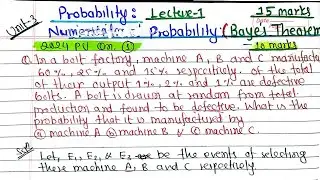 Unit-3
Probability: Lecture-1
15 marks
Numericals: Probability: (Bayes Theorem
10 marks
2024 PU Qn. ①
Q. In a bolt factory, machine A, B and C manufactu
60%, 25% and 15% respectively. of the total
of their output 1%, 2% and 1% are defective
bolts. A bolt is drawn at random from total
production and found to be defective. What is the
probability that it is manufactured by
ⓐ machine A ⓑ machine B & ⓒ machine C.
Let, E₁, E₂, & E₃ be the events of selecting
these machine A, B and C respectively.